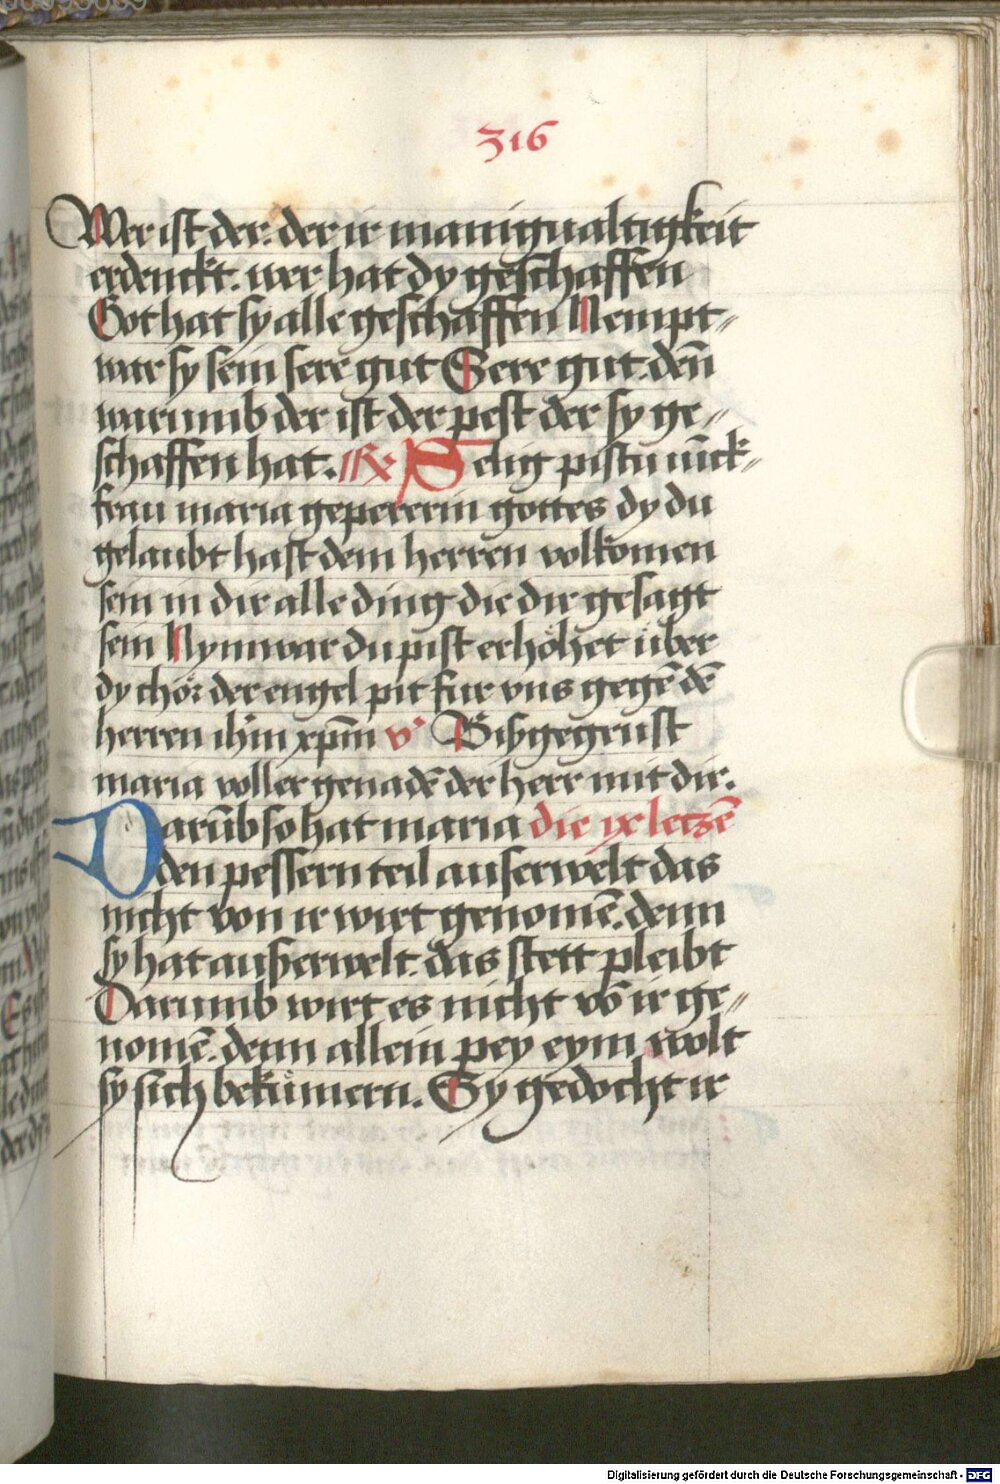 316
Wer ist der. der ir manigualtigkeit
erdenckt. wer hat dy geschaffen
Got hat sy alle geschaffen Nempt-
war sy sein sere gut Sere gut. deñ
warumb der ist der pest der sy ge-
schaffen hat. Rx Selig pistu iūck-
frau maria gepererin gottes dy du
gelaubt hast dem herren volkomen
sein in dir alle ding die dir gesagt
sein Nym war du pist erhöhet über
dy chör der engel pit für vns gegē dē
herren ihm xpm v Bis gegrüst
maria voller genadē der herr mit dir.
Darūb so hat maria die ix letzē
den pessern teil auserwelt das
nicht von ir wirt genomē. denn
sy hat auserwelt. das stett pleibt
Darumb wirt es nicht vō ir ge-
nomē. denn allein pey eym wolt
sy sich bekümern. Sy gedocht ir
Digitalisierung gefördert durch die Deutsche Forschungsgemeinschaft - DFG